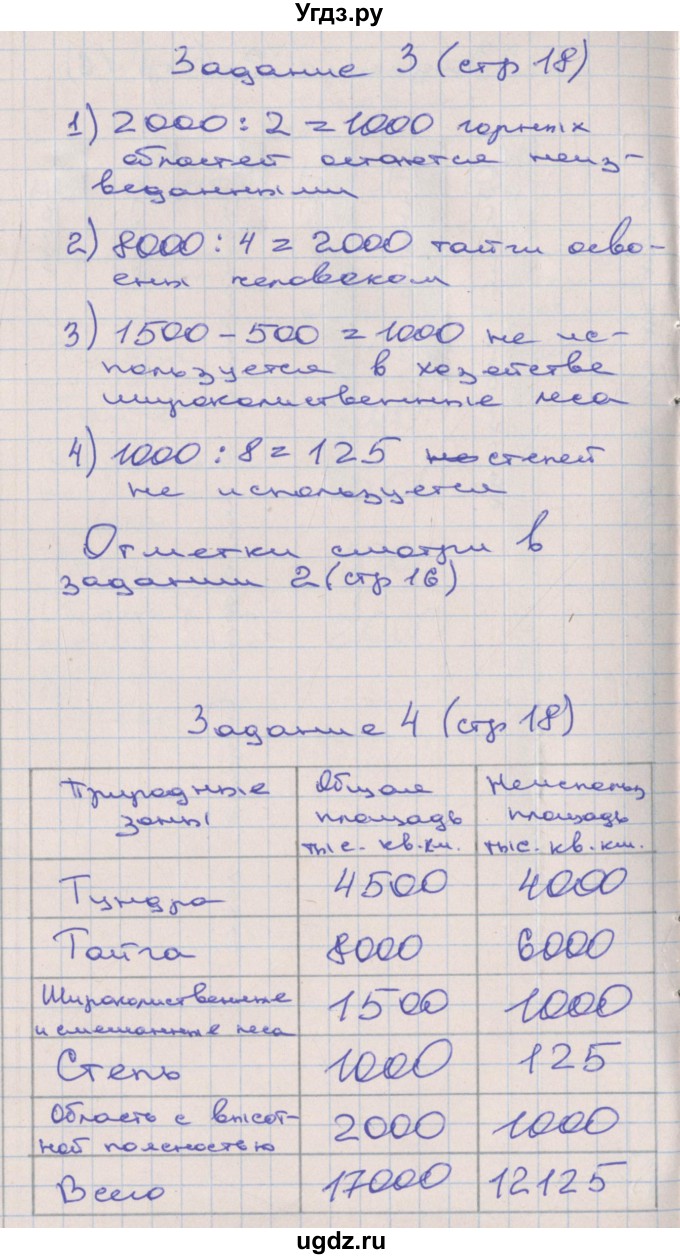 Угдз.ру
Задание 3 (стр 18)
1) 2000 : 2 = 1000 горных
областей остаются неиз-
веданными
2) 8000 : 4 = 2000 тайги осво-
ены человеком
3) 1500 - 500 = 1000 не ис-
пользуется в хозяйстве
широколиственные леса
4) 1000 : 8 = 125 степей
не используется
Отметки смотри в
задании 2 (стр 16)
Задание 4 (стр 18)
Природные зоны | Общая площадь тыс. кв. км. | Неиспольз площадь тыс. кв. км.
Тундра 4500 4000
Тайга 8000 6000
Широколиственные и смешанные леса 1500 1000
Степь 1000 125
Область с высот-ной поясностью 2000 1000
Всего 17000 12125
ugdz.ru